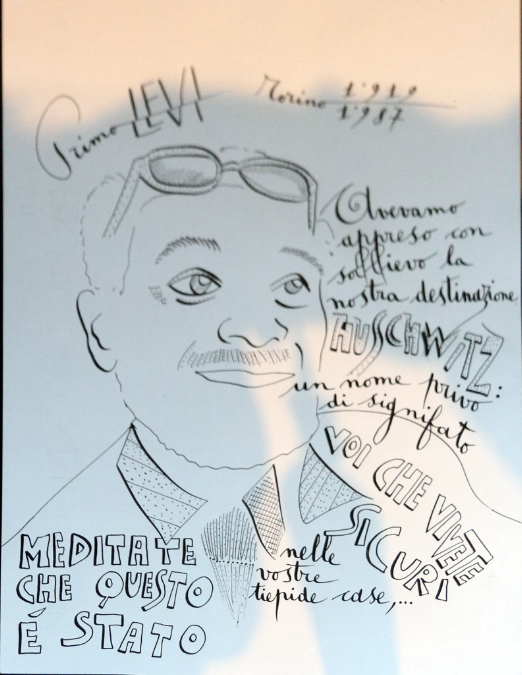 Primo LEVI
Torino 1919
1987
Avevamo
appreso con
sollievo la
nostra destinazione
AUSCHWITZ:
un nome privo
di signifato
VOI CHE VIVETE
SICURI
nelle
vostre
tiepide case,...
MEDITATE
CHE QUESTO
É STATO